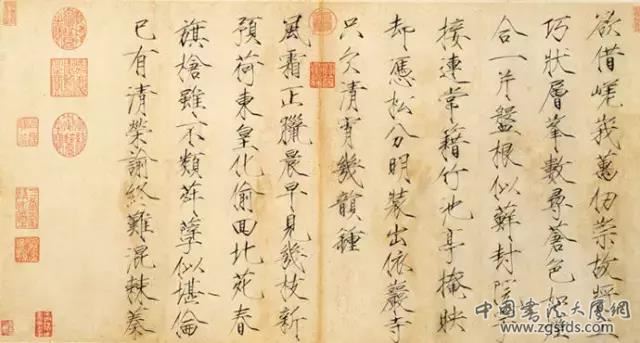 欲借嵯峨萬仞崇故將工
巧狀層峯數尋蒼色如煙
合一片盤根似蘚封院宇
接連常籍竹池亭掩映
却憑松分明裝出依巖寺
只欠清宵幾韻鍾
風霜正臘晨早見幾枝新
預荷東皇化偷回北苑春
旗槍雖不類荈孽似堪倫
已有清榮諭終難混棘蓁
中國書法大厦網
www.zgsfds.com